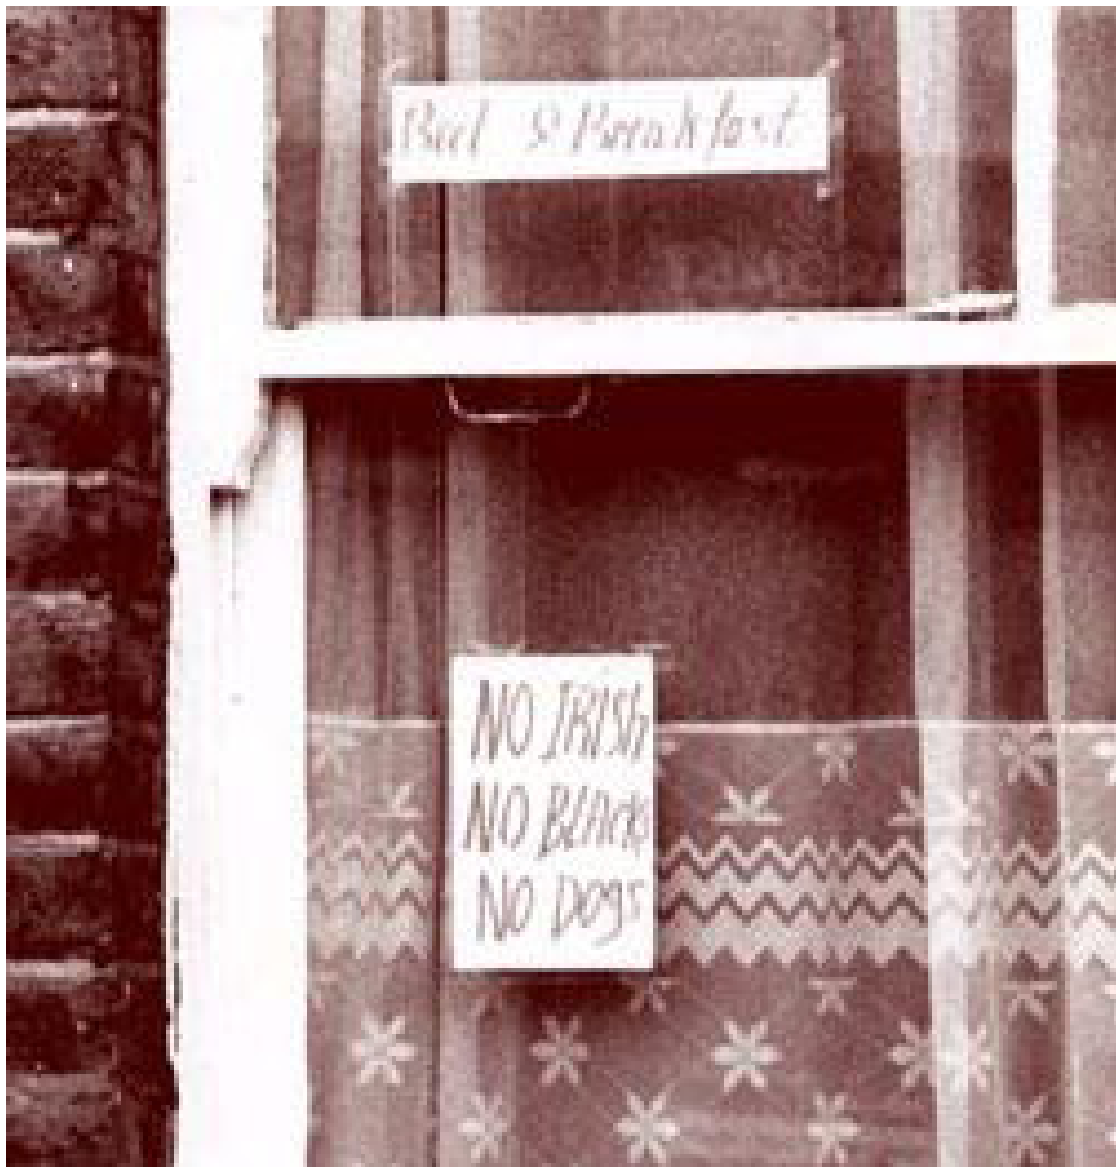 Bed & Breakfast
NO IRISh
NO BLAcks
NO Dogs